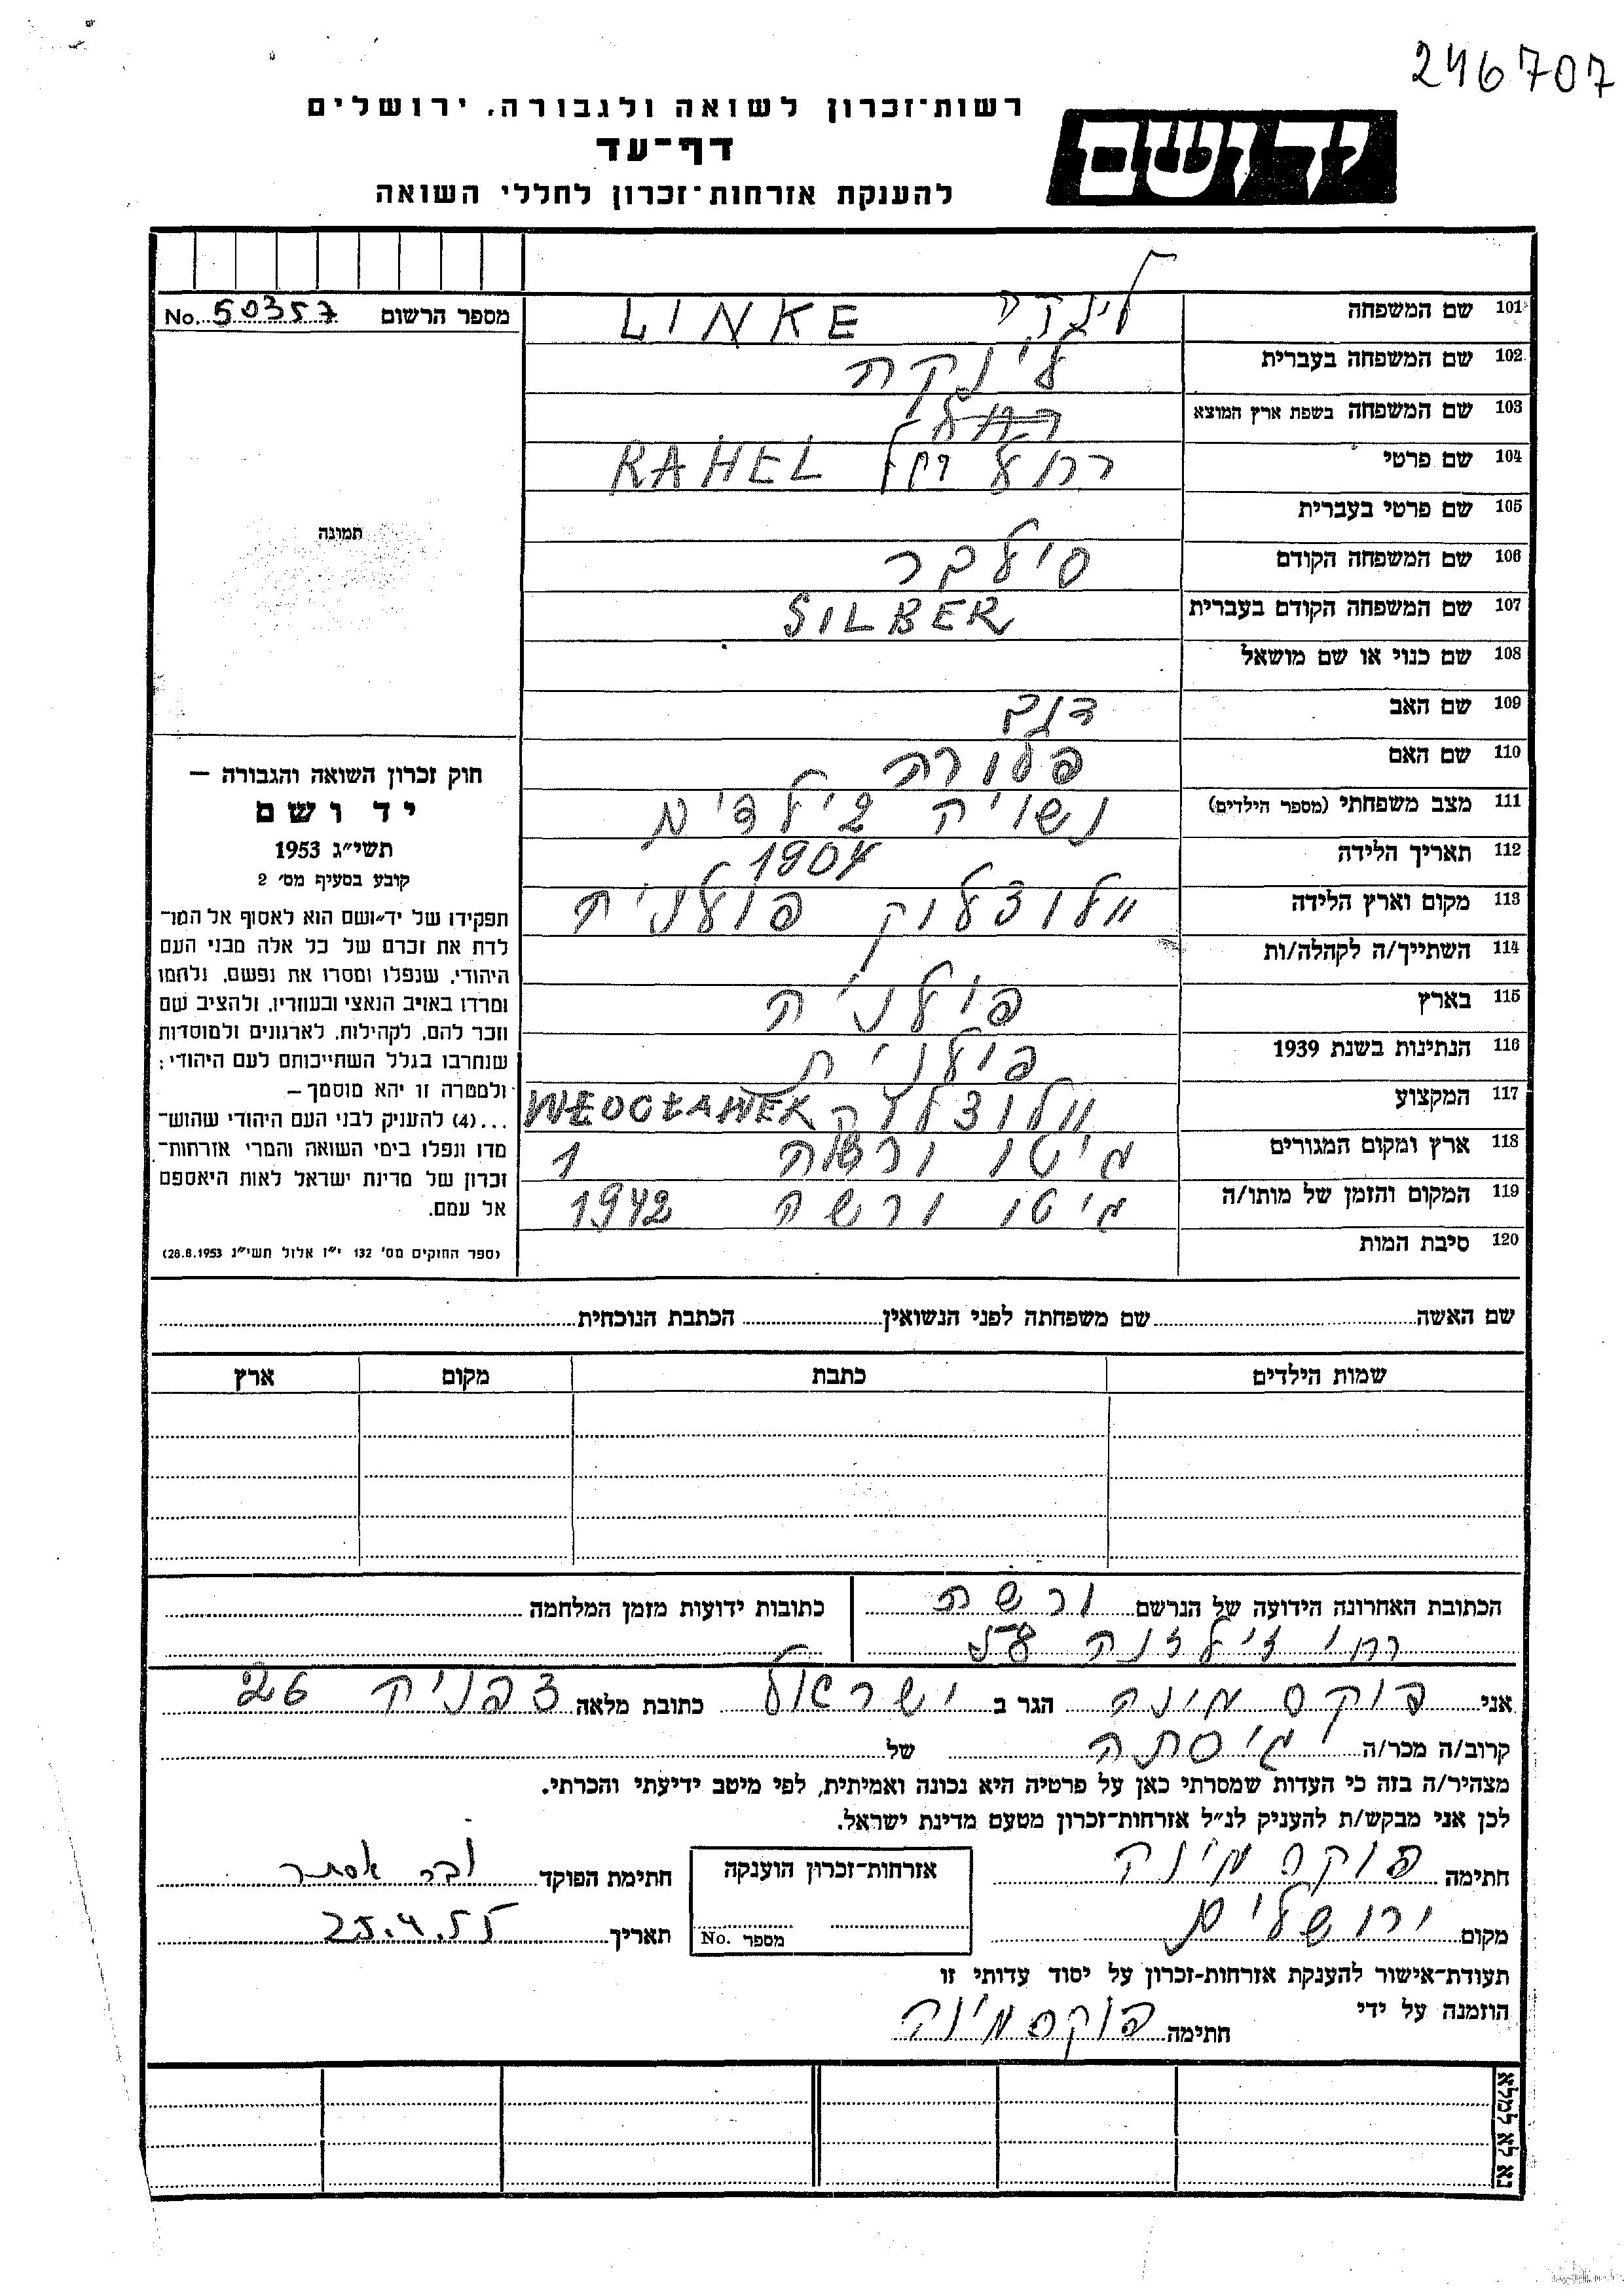 246707
רשות־זכרון לשואה ולגבורה, ירושלים
ידושם
דף־עד
להענקת אזרחות־זכרון לחללי השואה
מספר הרשום No. 50357
תמונה
חוק זכרון השואה והגבורה —
יד ושם
תשי״ג 1953
קובע בסעיף מס׳ 2
תפקידו של יד־ושם הוא לאסוף אל המו־
לדת את זכרם של כל אלה מבני העם
היהודי, שנפלו ומסרו את נפשם, נלחמו
ומרדו באויב הנאצי ובעוזריו, ולהציב שם
וזכר להם, לקהילות, לארגונים ולמוסדות
שנחרבו בגלל השתייכותם לעם היהודי;
ולמטרה זו יהא מוסמך —
...(4) להעניק לבני העם היהודי שהוש־
מדו ונפלו בימי השואה והמרי אזרחות־
זכרון של מדינת ישראל לאות היאספם
אל עמם.
(ספר החוקים מס׳ 132 י״ז אלול תשי״ג 28.8.1953)
101 שם המשפחה לינקה LINKE
102 שם המשפחה בעברית לינקה
103 שם המשפחה בשפת ארץ המוצא רחל
104 שם פרטי רחל RAHEL
105 שם פרטי בעברית
106 שם המשפחה הקודם סילבר
107 שם המשפחה הקודם בעברית SILBER
108 שם כנוי או שם מושאל
109 שם האב
110 שם האם פלורה
111 מצב משפחתי (מספר הילדים) נשויה 2 ילדים
112 תאריך הלידה 1904
113 מקום וארץ הלידה וולוצלוק פולניה
114 השתייך/ה לקהלה/ות
115 בארץ פולניה
116 הנתינות בשנת 1939 פולנית
117 המקצוע וולוצלק WŁOCŁAWEK
118 ארץ ומקום המגורים גיטו ורשה 1
119 המקום והזמן של מותו/ה גיטו ורשה 1942
120 סיבת המות
שם האשה שם משפחתה לפני הנשואין הכתבת הנוכחית
שמות הילדים כתבת מקום ארץ
הכתובת האחרונה הידועה של הנרשם ורשה
רחו
כתובות ידועות מזמן המלחמה
אני פוקס מינה הגר ב ישראל כתובת מלאה צפניה 26
קרוב/ה מכר/ה גיסתה של
מצהיר/ה בזה כי העדות שמסרתי כאן על פרטיה היא נכונה ואמיתית, לפי מיטב ידיעתי והכרתי.
לכן אני מבקש/ת להעניק לנ״ל אזרחות־זכרון מטעם מדינת ישראל.
חתימה פוקס מינה אזרחות־זכרון הוענקה חתימת הפוקד ובר אסתר
מקום ירושלים מספר No. תאריך 25.4.55
תעודת־אישור להענקת אזרחות־זכרון על יסוד עדותי זו
הוזמנה על ידי
חתימה פוקס מינה
נא לא למלא